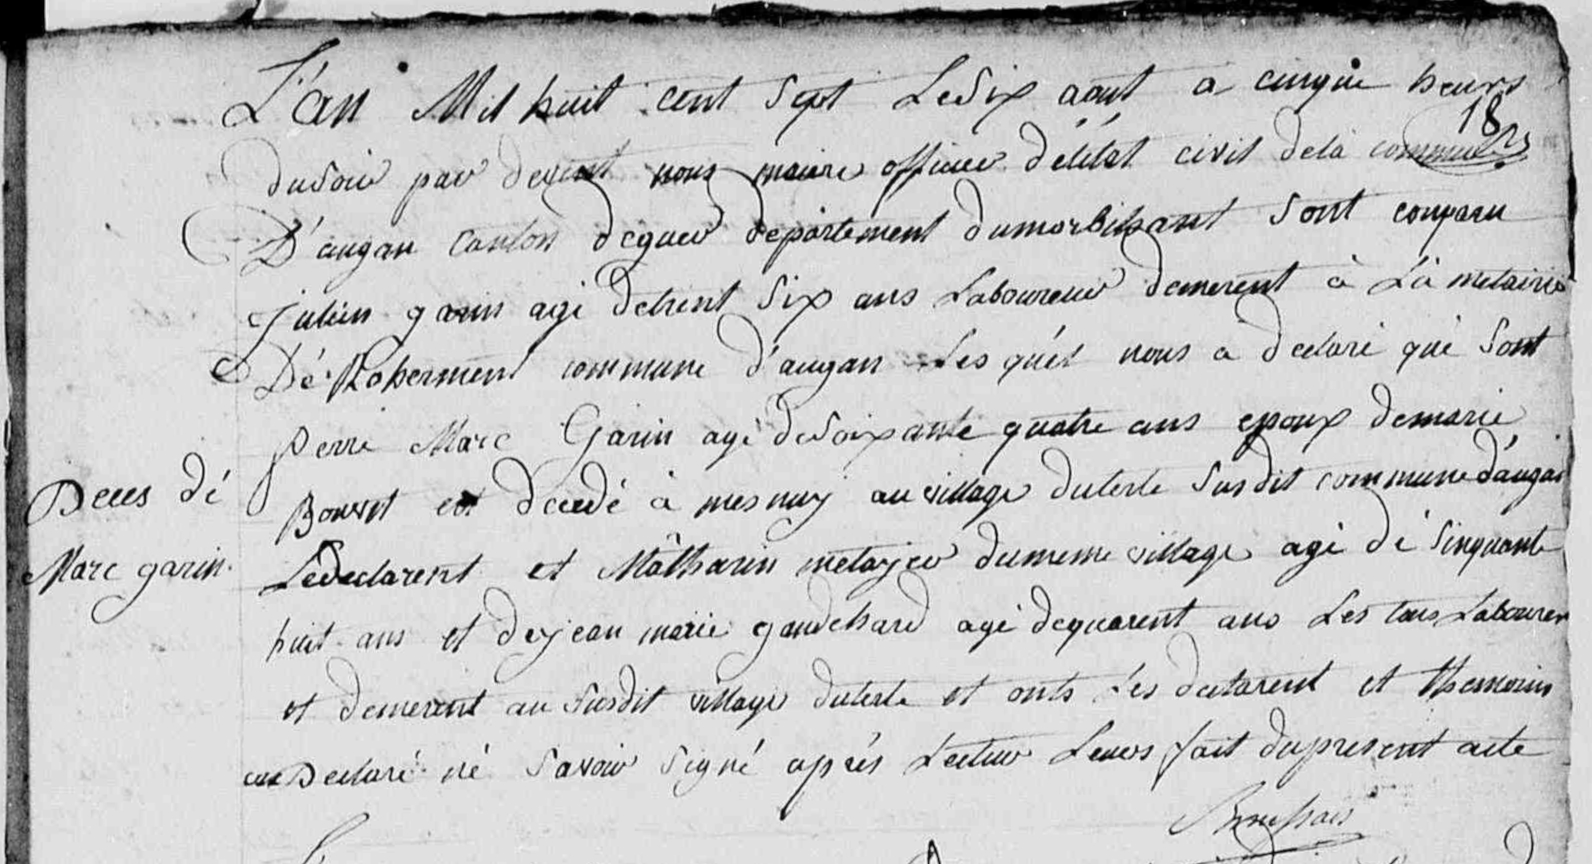 L'an Mil huit cent Sept Le Six aout a cinque heurs
18
du Soir par devent nous maire officier d'élétat civil de la commune
D'augan canton déguer département du morbihant Sont comparu
julien garin agé de trent Six ans Laboureur demerent à La metairie
Dé Roherment commune d'augan Les qués nous a declaré qué Sont
perre Marc Garin agé de Soixante quatre ans epoux de marie
Deces dé
Marc garin.
Bouvet est decedé à mesnuy au village du terte Sus dit commune d'augan
Le declarent et Mâtharin métayer du meme village agé dé Sinquante
huit ans et de jean marie gaudchard agé de quarent ans Les tous Laboureur
et demerent au Susdit village du terte et onts Les declarent et themoins
Declaré né Savoir Signé aprés Lectur Leurs fait du present acte